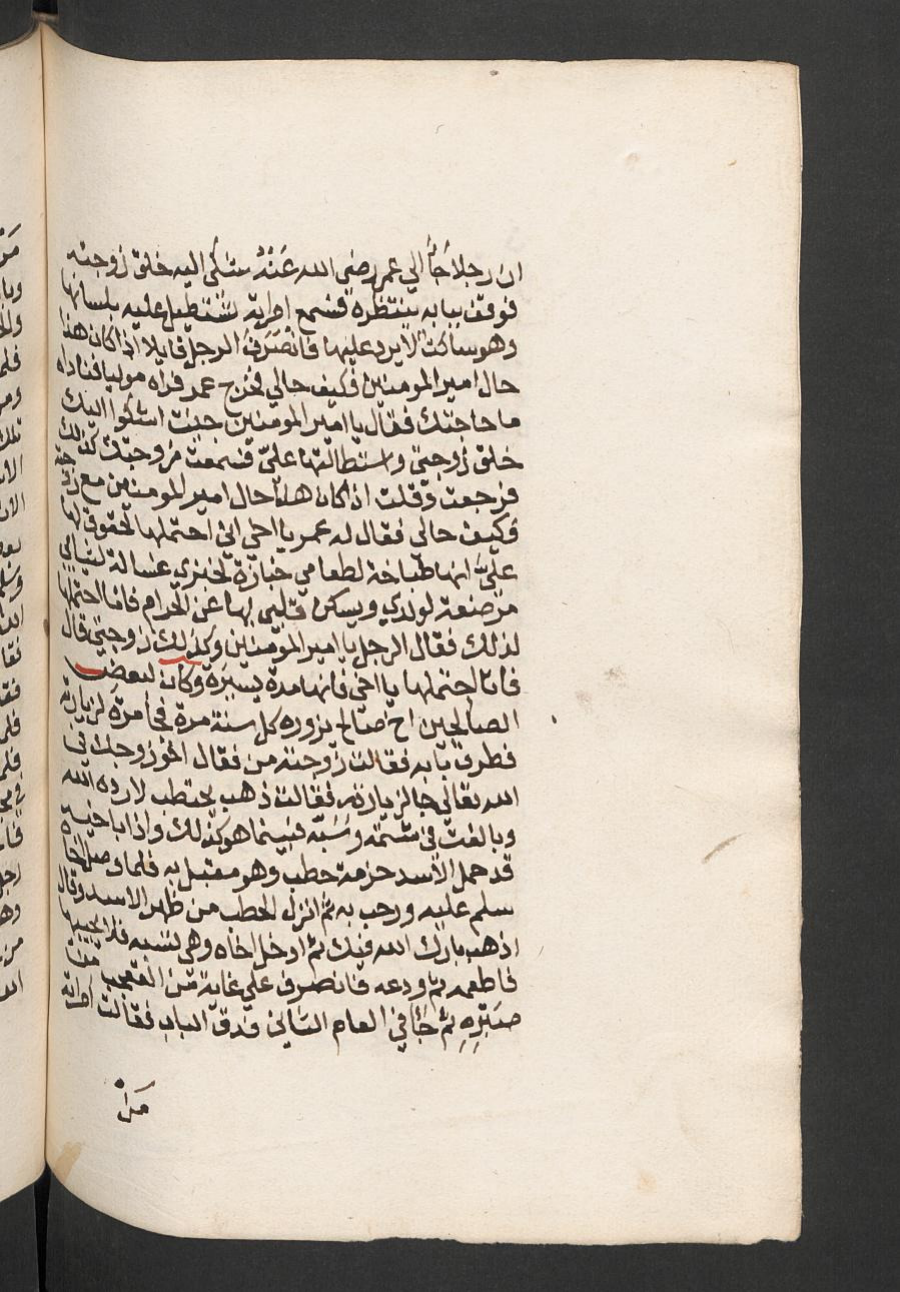 ان رجلا جَاء الي عمر رضي الله عَنْهُ يشكي اليه خلق زوجته
فوقف ببابه ينتظره فسمع امراته تستطيل عليه بلسانها
وهو ساكت لا يرد عليها فانصَرَف الرجل قايلا اذا كان هذا
حال امير المومنين فكيف حالي فخرج عمر فراه موليا فناداه
ما حاجتك فقال يا امير المومنين جيت اشكوا اليك
خلق زوجتي واستطالتها عليّ فسمعت من زوجتك كذلك
فرجعت وقلت اذا كان هذا حال امير المومنين مع زوجته
فكيف حالي فقال له عمر يا اخي اني احتملها لحقوق لها
عليّ انها طباخة لطعامي خبازة لخبزي غسالة لثيابي
مرضعة لولدي ويسكن قلبي بها عن الحرام فانا احتملها
لذلك فقال الرجل يا امير المومنين وكذلك زوجتي قال
فانا احتملها يا اخي فانها مدة يسيرة وكان لبعض
الصالحين اخ صالح يزوره كل سنة مرة فجا مرة لزيارته
فطرق بابه فقالت زوجته من فقال اخو زوجك في
الله تعالى جا لزيارته فقالت ذهب يحتطب لا رده الله
وبالغت في شتمه وسَبّه فبينما هو كذلك واذا باخيه
قد حمل الاسد حزمة حطب وهو مقبل به فلما وصل اخاه
سلم عليه ورحب به ثم انزل الحطب من ظهر الاسد وقال
اذهب بارك الله فيك ثم ادخل اخاه وهي تسبه فلا يجيبها
فاطعمه ثم ودعه فانصرف علي غاية من العجب من
صَبْرِهِ ثم جَا في العام الثاني فدق الباب فقالت امراته
مَن